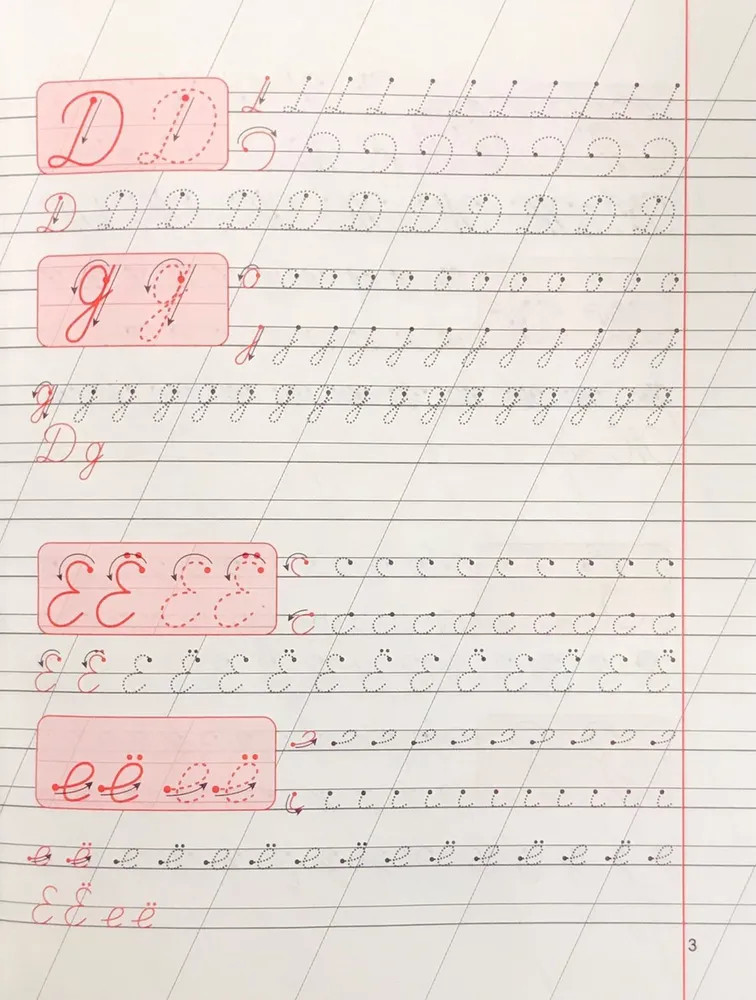 Д Д
Д Д Д Д Д Д Д Д Д Д Д
д д
д д д д д д д д д д д д д д д д д
Д д
Е Ё Е Ё
Е Ё Е Ё Е Ё Е Ё Е Ё Е Ё Е Ё
е ё е ё
е ё е ё е ё е ё е ё е ё е ё е
Е Ё е ё
3